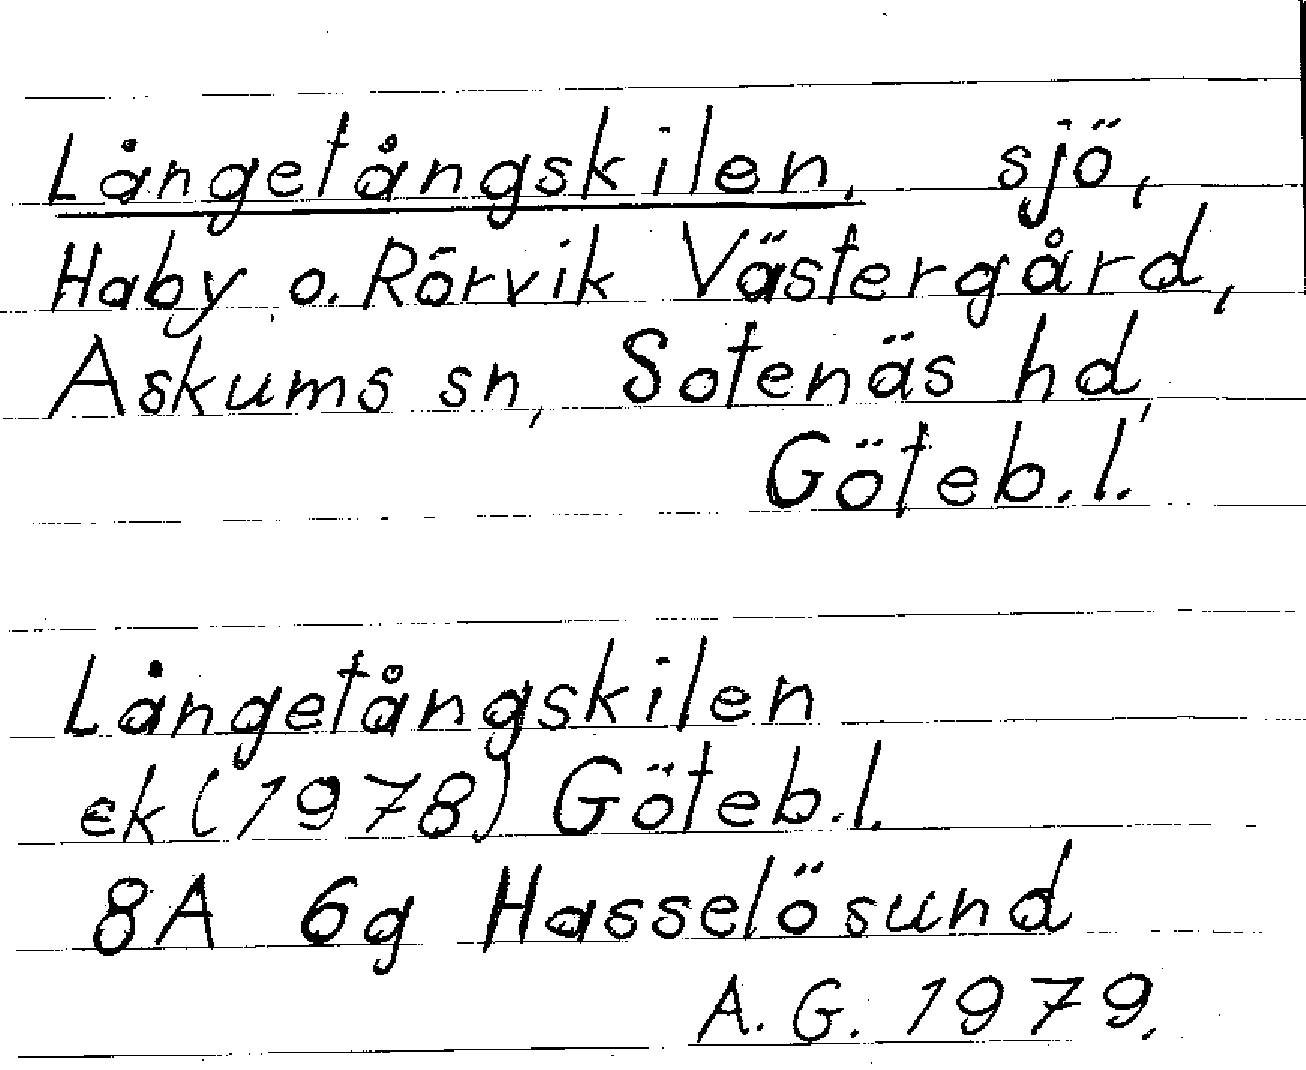 Långetångskilen, sjö,
Haby o. Rörvik Västergård,
Askums sn, Sotenäs hd,
Göteb. l.
Långetångskilen
ek (1978) Göteb. l.
8A 6g Hasselösund
A. G. 1979.